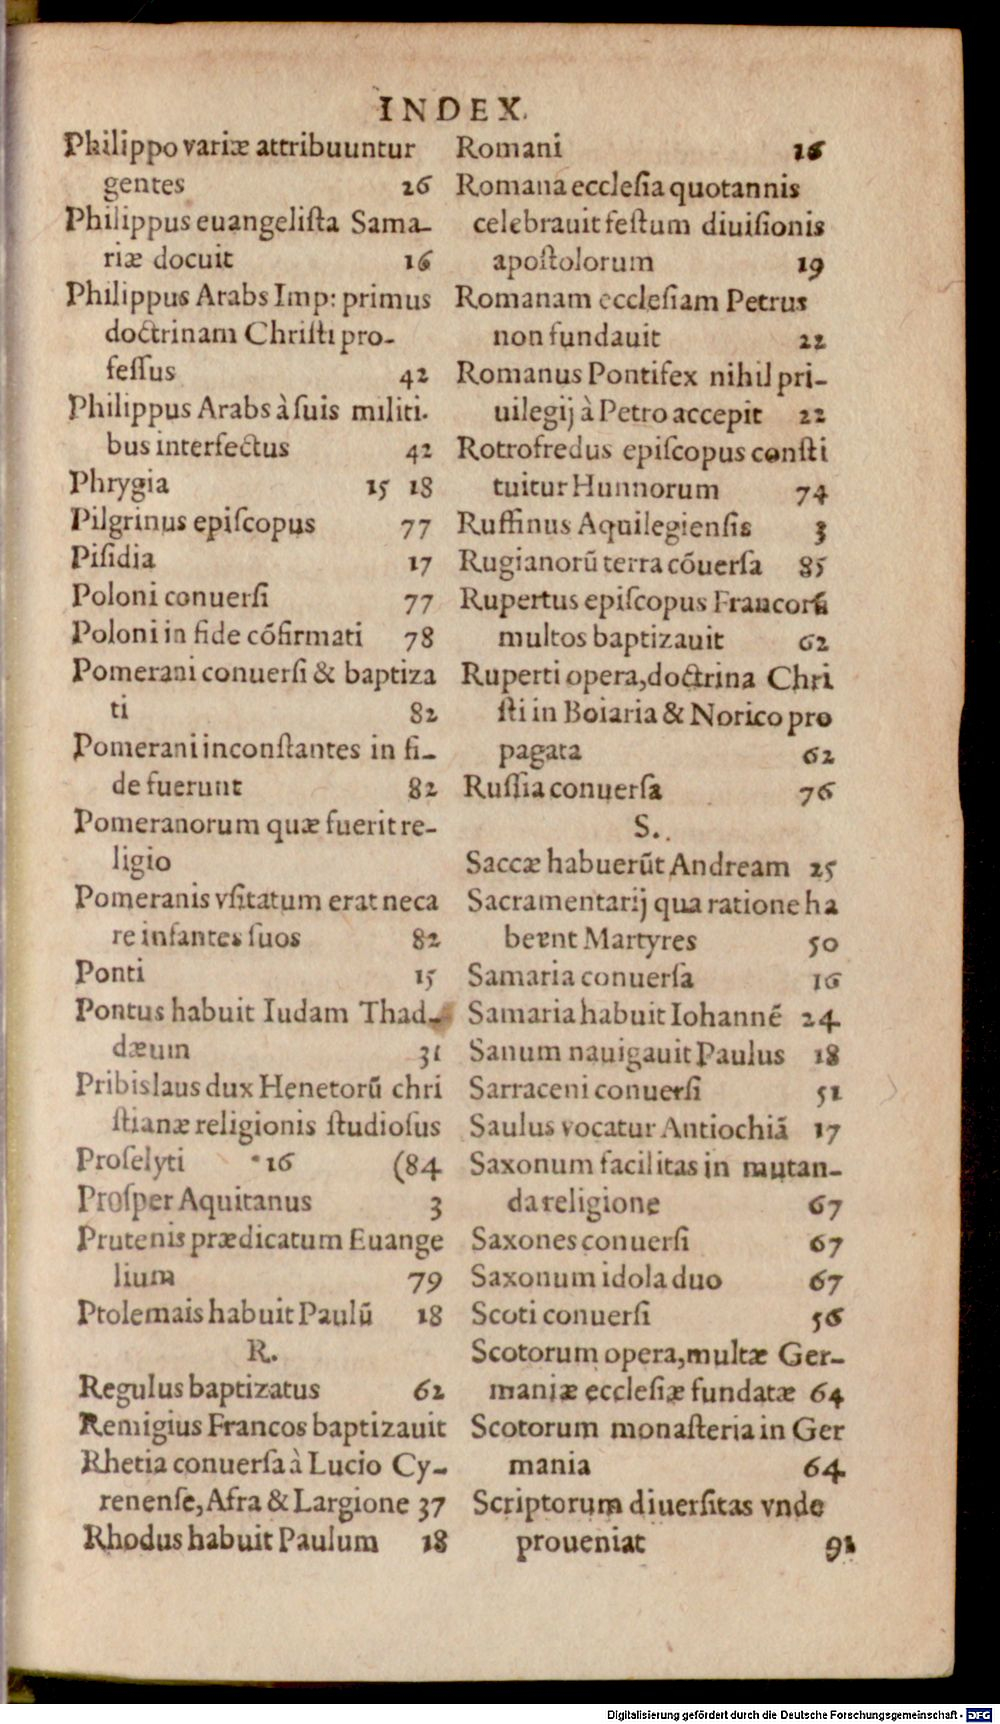 INDEX.
Philippo variæ attribuuntur
gentes 26
Philippus euangeliſta Sama-
riæ docuit 16
Philippus Arabs Imp: primus
doctrinam Chriſti pro-
feſſus 42
Philippus Arabs à ſuis militi-
bus interfectus 42
Phrygia 15 18
Pilgrinus epiſcopus 77
Piſidia 17
Poloni conuerſi 77
Poloni in fide cōfirmati 78
Pomerani conuerſi & baptiza
ti 82
Pomerani inconſtantes in fi-
de fuerunt 82
Pomeranorum quæ fuerit re-
ligio
Pomeranis vſitatum erat neca
re infantes ſuos 82
Ponti 15
Pontus habuit Iudam Thad-
dæum 31
Pribislaus dux Henetorū chri
ſtianæ religionis ſtudioſus
Proſelyti 16 (84
Proſper Aquitanus 3
Prutenis prædicatum Euange
lium 79
Ptolemais habuit Paulū 18
R.
Regulus baptizatus 62
Remigius Francos baptizauit
Rhetia conuerſa à Lucio Cy-
renenſe, Afra & Largione 37
Rhodus habuit Paulum 18
Romani 16
Romana eccleſia quotannis
celebrauit feſtum diuiſionis
apoſtolorum 19
Romanam eccleſiam Petrus
non fundauit 22
Romanus Pontifex nihil pri-
uilegij à Petro accepit 22
Rotrofredus epiſcopus conſti
tuitur Hunnorum 74
Ruffinus Aquilegienſis 3
Rugianorū terra cōuerſa 85
Rupertus epiſcopus Francorū
multos baptizauit 62
Ruperti opera, doctrina Chri
ſti in Boiaria & Norico pro
pagata 62
Ruſſia conuerſa 76
S.
Saccæ habuerūt Andream 25
Sacramentarij qua ratione ha
bernt Martyres 50
Samaria conuerſa 16
Samaria habuit Iohannē 24
Sanum nauigauit Paulus 18
Sarraceni conuerſi 51
Saulus vocatur Antiochiā 17
Saxonum facilitas in mutan-
da religione 67
Saxones conuerſi 67
Saxonum idola duo 67
Scoti conuerſi 56
Scotorum opera, multæ Ger-
maniæ eccleſiæ fundatæ 64
Scotorum monaſteria in Ger
mania 64
Scriptorum diuerſitas vnde
proueniat 92
Digitalisierung gefördert durch die Deutsche Forschungsgemeinschaft - DFG